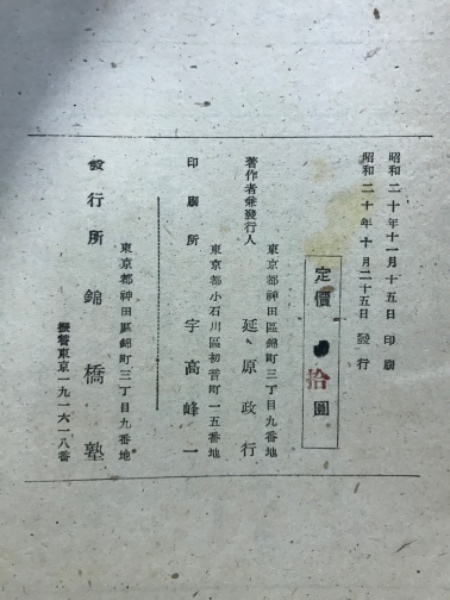 昭和二十年十一月十五日印刷
昭和二十年十月二十五日發行
定價 拾圓
東京都神田區錦町三丁目九番地
著作者兼發行人 延原政行
東京都小石川區初音町一五番地
印刷所 宇高峰一
東京都神田區錦町三丁目九番地
發行所 錦橋塾
振替東京一九一六一八番